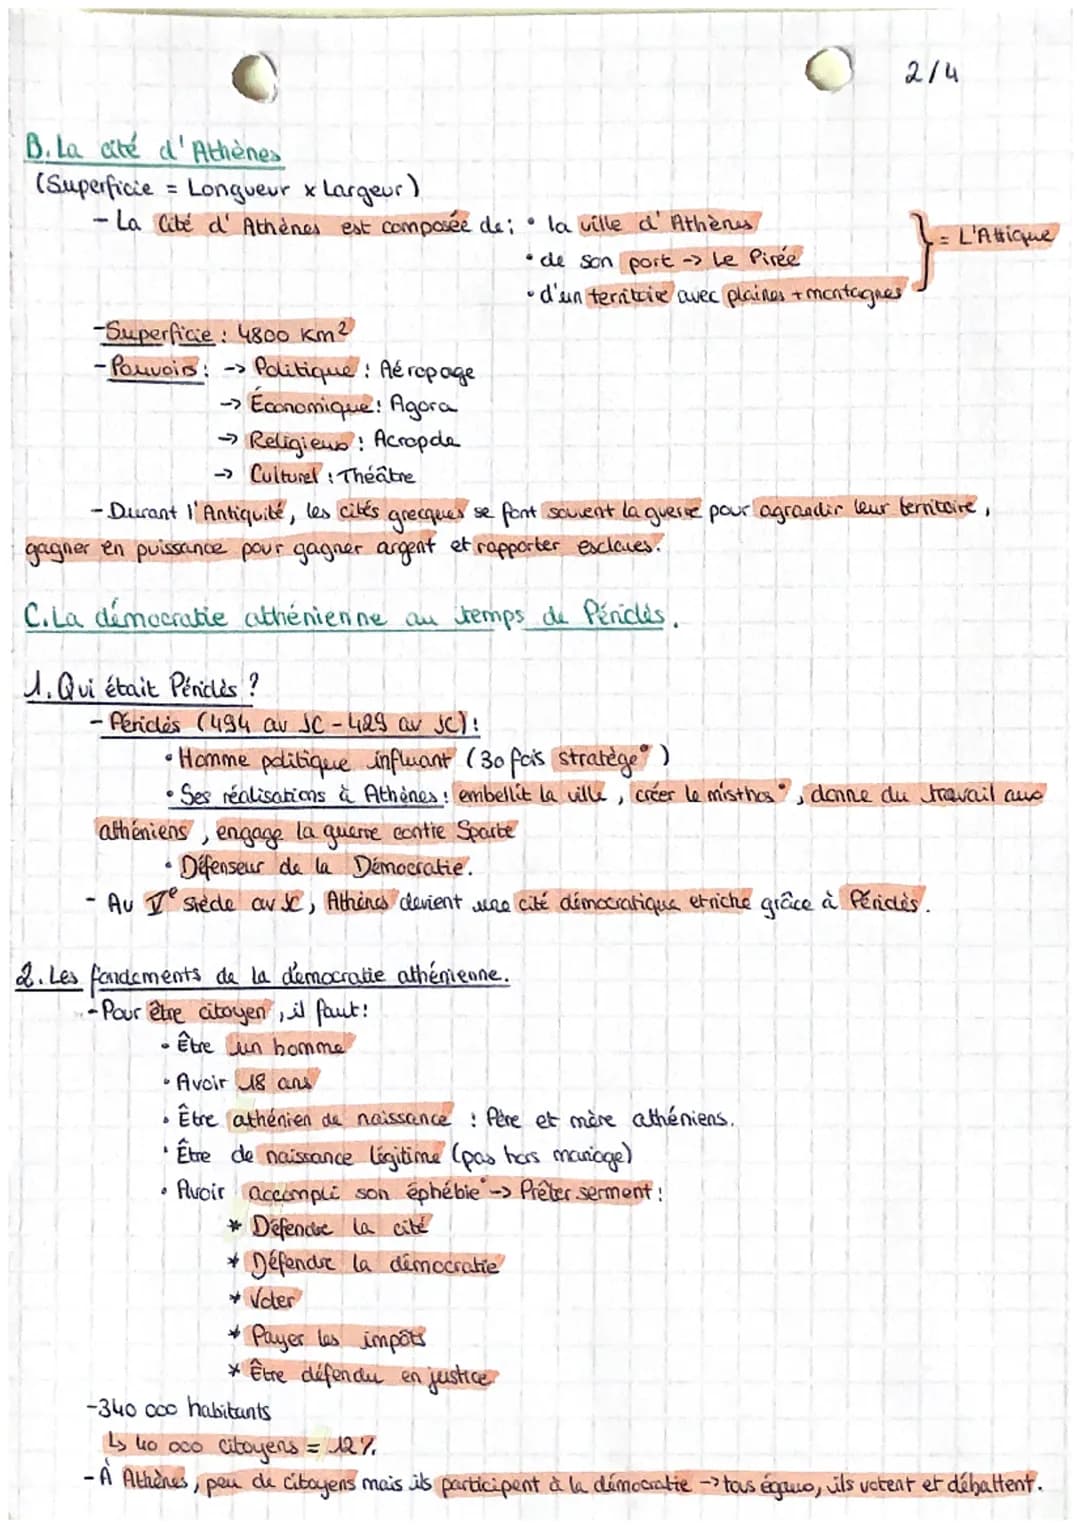 2/4
B. La cité d'Athènes
(Superficie = Longueur x Largeur)
- La Cité d'Athènes est composée de : • la ville d'Athènes
• de son port -> Le Pirée
• d'un territoire avec plaines + montagnes
= L'Attique
- Superficie : 4800 Km²
- Pouvoirs : -> Politique : Aéropage
-> Économique : Agora
-> Religieux : Acropole
-> Culturel : Théâtre
- Durant l'Antiquité, les cités grecques se font souvent la guerre pour agrandir leur territoire,
gagner en puissance pour gagner argent et rapporter esclaves.
C. La démocratie athénienne au temps de Périclès.
1. Qui était Périclès ?
- Périclès (494 av JC - 429 av JC) :
• Homme politique influant (30 fois stratège°)
• Ses réalisations à Athènes : embellit la ville, créer le misthos°, donne du travail aux
athéniens, engage la guerre contre Sparte
• Défenseur de la Démocratie.
- Au Ve siècle av JC, Athènes devient une cité démocratique et riche grâce à Périclès.
2. Les fondements de la démocratie athénienne.
- Pour être citoyen, il faut :
• Être un homme
• Avoir 18 ans
• Être athénien de naissance : Père et mère athéniens.
• Être de naissance légitime (pas hors mariage)
• Avoir accompli son éphébie° -> Prêter serment :
* Défendre la cité
* Défendre la démocratie
* Voter
* Payer les impôts
* Être défendu en justice
- 340 000 habitants
↳ 40 000 citoyens = 12%
- À Athènes, peu de citoyens mais ils participent à la démocratie -> tous égaux, ils votent et débattent.